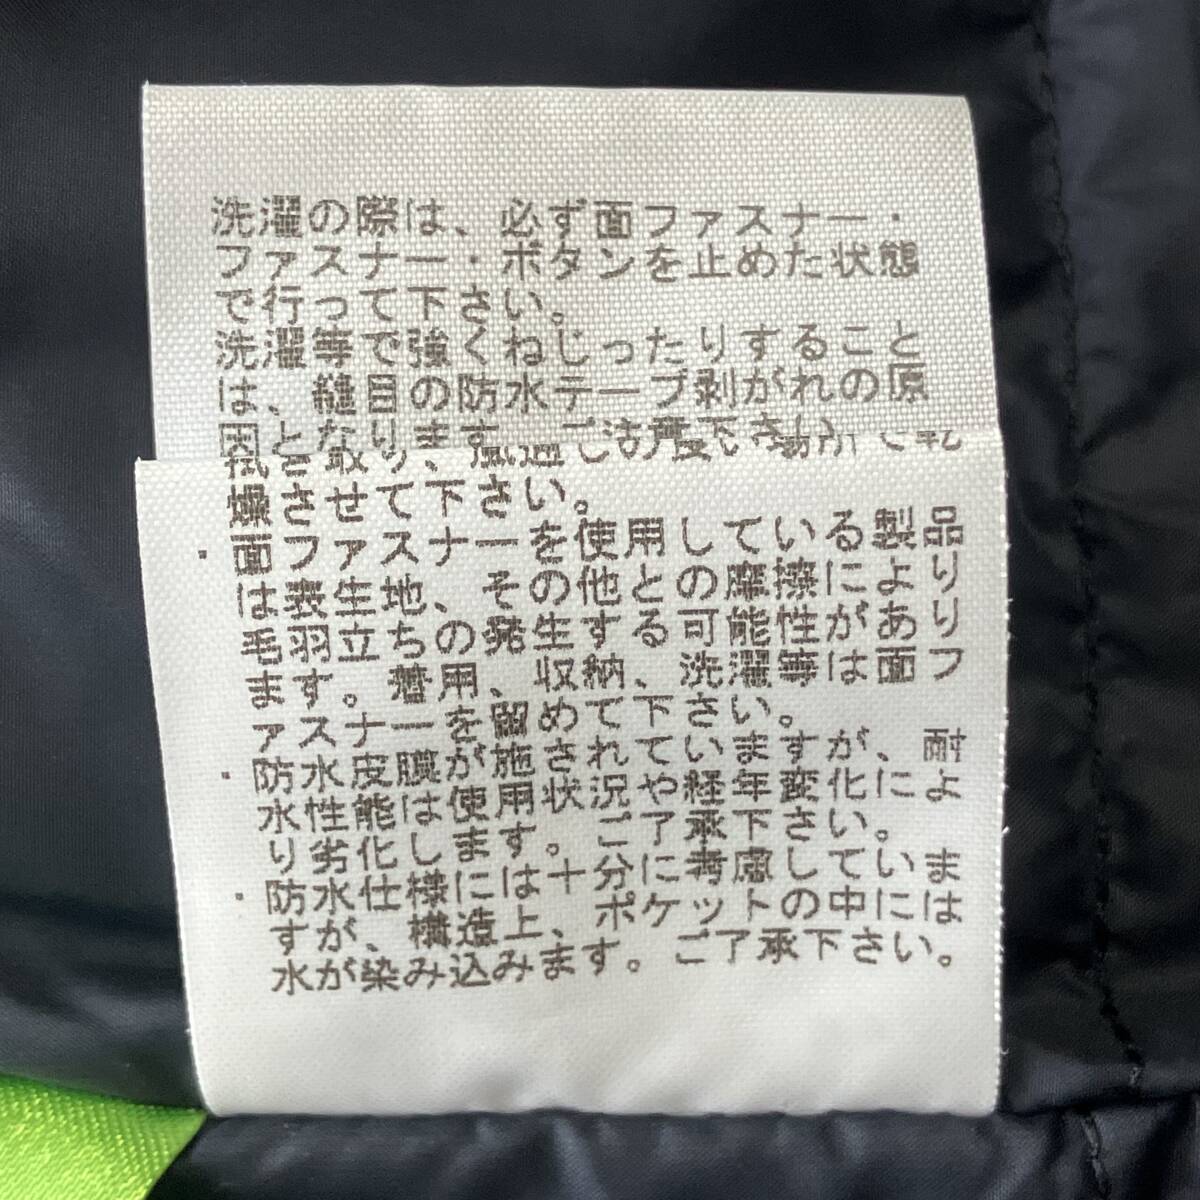 洗濯の際は、必ず面ファスナー・
ファスナー・ボタンを止めた状態
で行って下さい。
洗濯等で強くねじったりすること
は、縫目の防水テープ剥がれの原
因となります。ご注意下さい。
燥させて下さい。
・面ファスナーを使用している製品
は表生地、その他との摩擦により
毛羽立ちの発生する可能性があり
ます。着用、収納、洗濯等は面フ
ァスナーを留めて下さい。
・防水皮膜が施されていますが、耐
水性能は使用状況や経年変化によ
り劣化します。ご了承下さい。
・防水仕様には十分に考慮していま
すが、構造上、ポケットの中には
水が染み込みます。ご了承下さい。